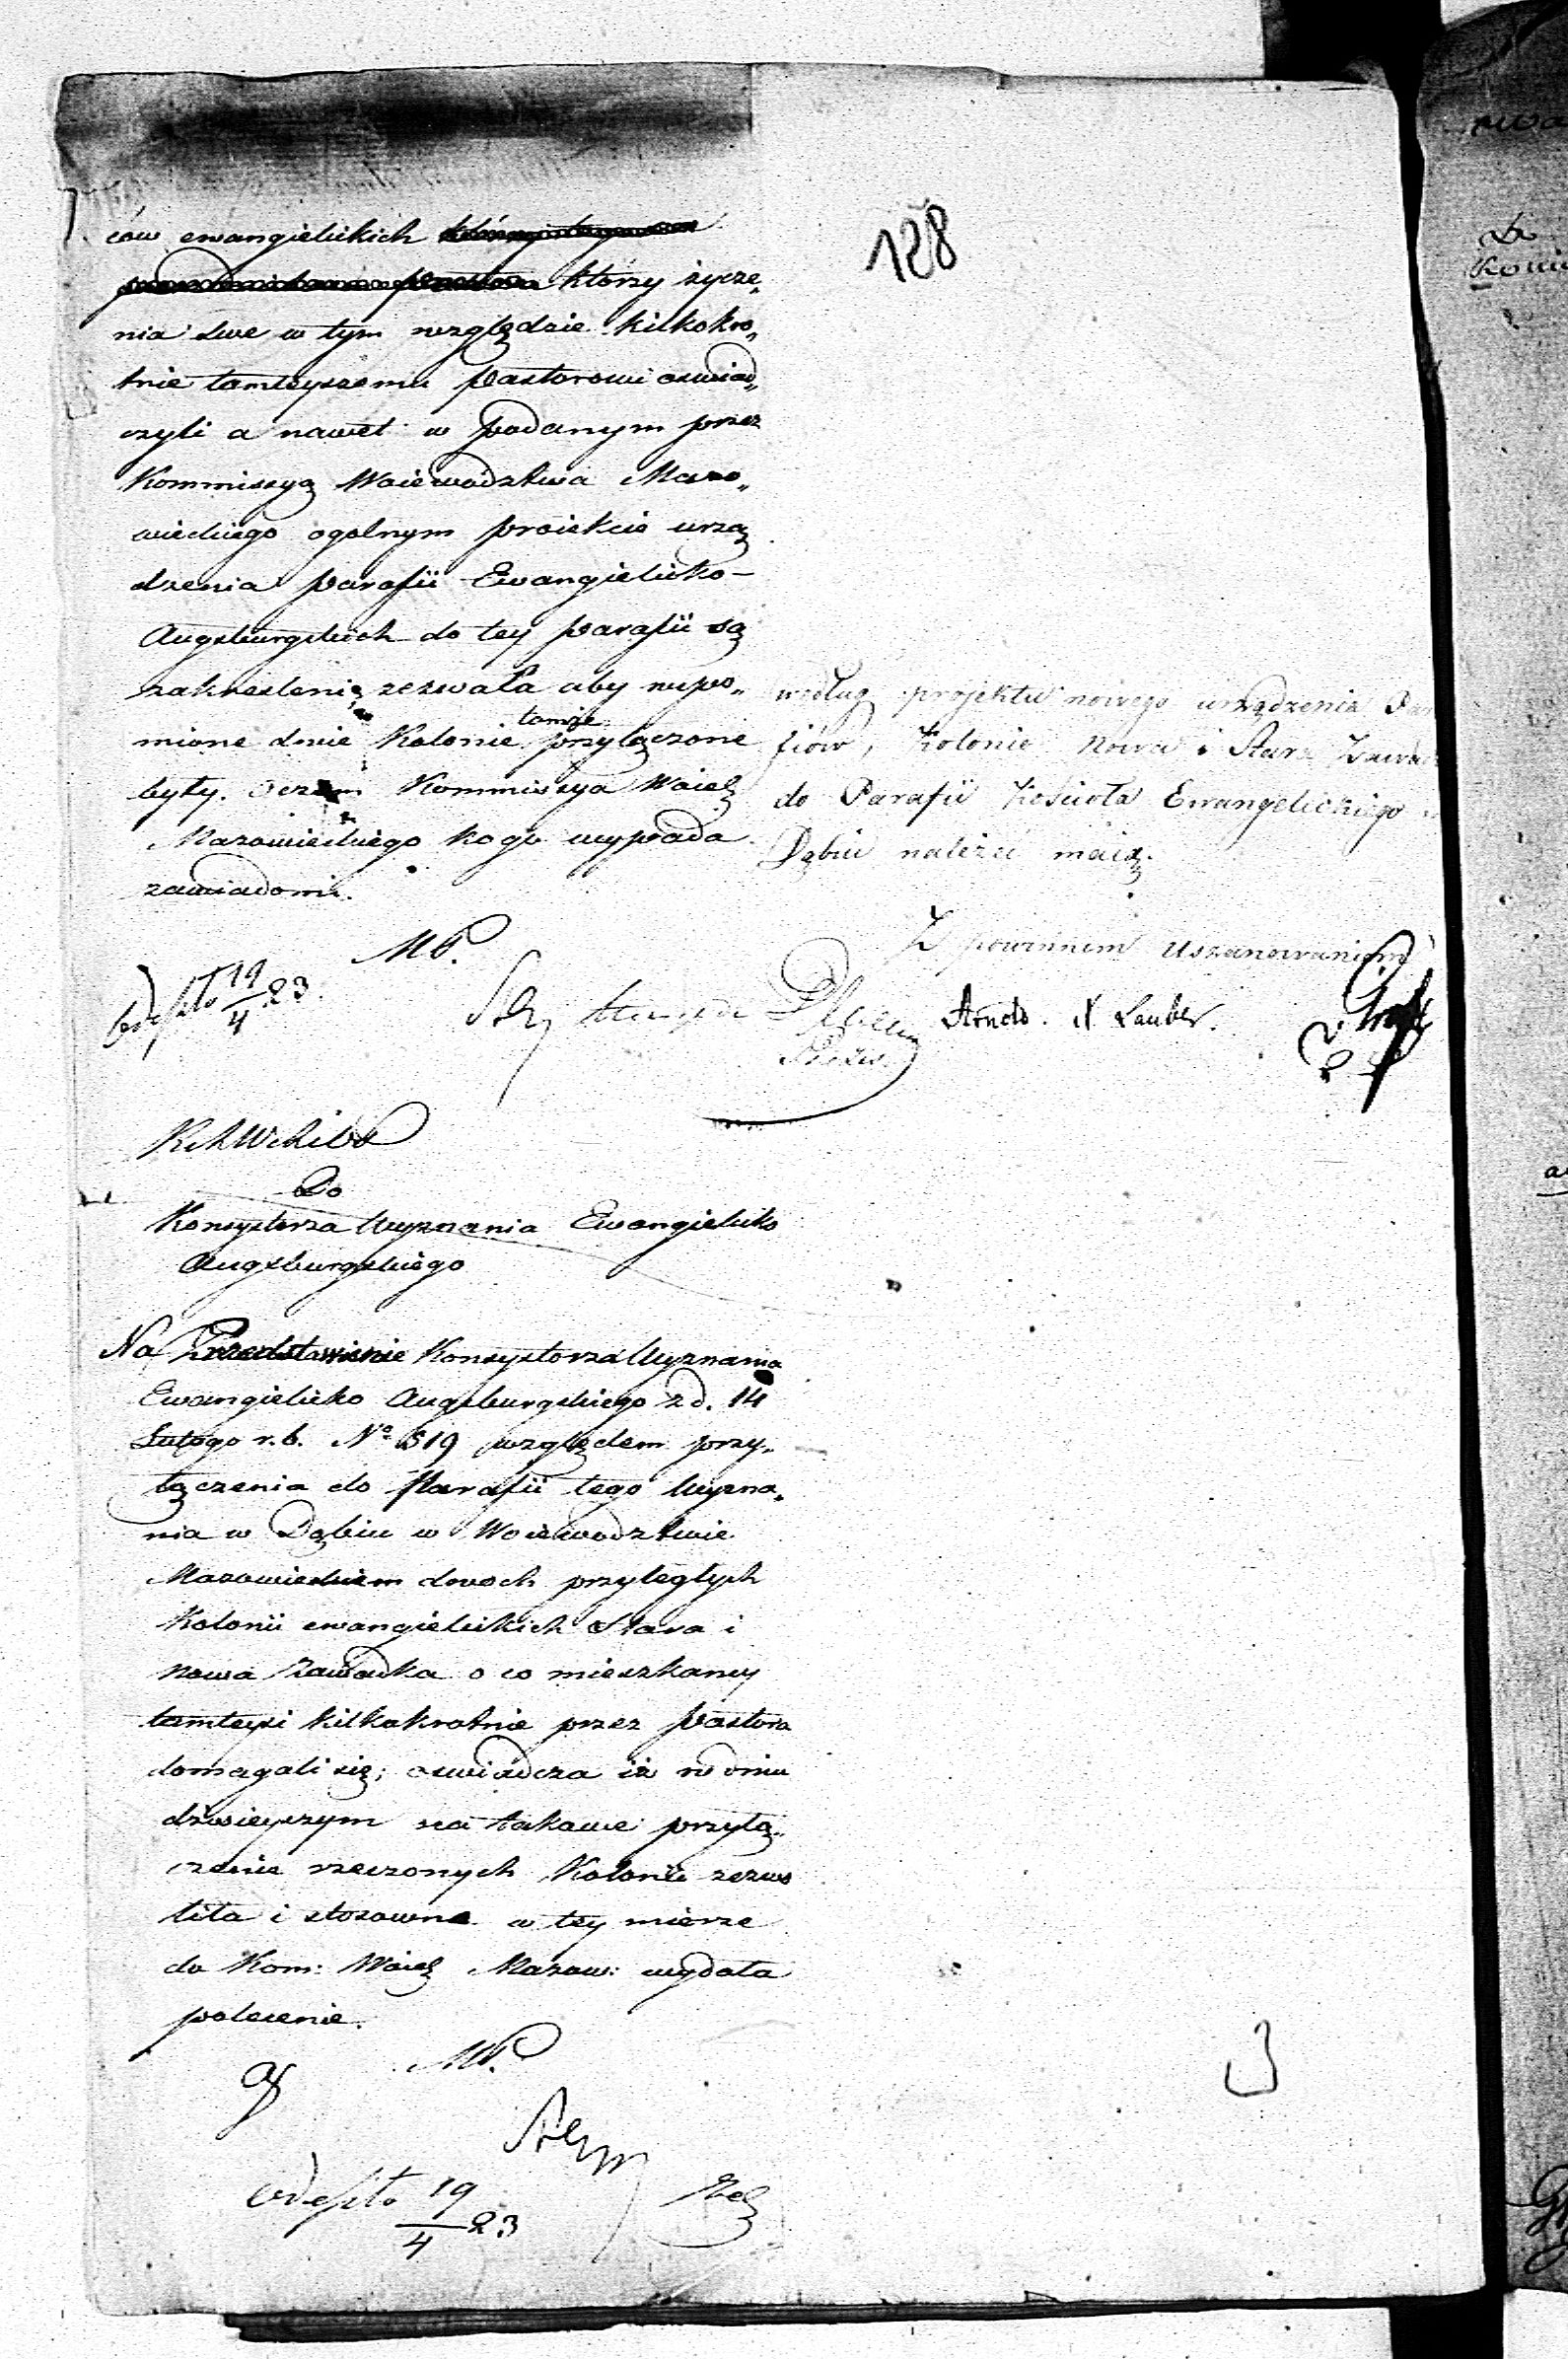 128
ców ewangielickich
którzy życze„
nia swe w tym względzie kilkokro„
tnie tamteyszemu Pastorowi oswiad„
czyli a nawet w podanym przez
Kommissyą Woiewodztwa Mazo„
wieckiego ogolnym proiekcie urzą
dzenia Parafii Ewangielicko-
Augsburgskich do tey Parafii są
zakresleni, zezwala aby wspo„
mione dwie Kolonie tamże przyłączone
były. O czem Kommissya Woiew
Mazowieckiego kogo wypada
zawiadomi.
według projektu nowego urządzenia Par
fiów, Kolonie Nowa i Stara Zawad
do Parafii Kościoła Ewangelickiego w
Dąbiu należeć maią.
Z powinnem uszanowaniem
MP.
Odeszło 19/4 23.
Prezes.
Arnold. Lauber.
Do
Konsystorza Wyznania Ewangielicko
Augsburgskiego
Na Przedstawienie Konsystorza Wyznania
Ewangielicko Augsburgskiego z d. 14
Lutego r. b. Nº 519 względem przy„
łączenia do Parafii tego Wyzna„
nia w Dąbiu w Woiewodztwie
Mazowieckiem dwoch przyległych
Kolonii ewangielickich Stara i
Nowa Zawadka o co mieszkancy
tamteysi kilkakrotnie przez Pastora
domagali się; oswiadcza iż w dniu
dzisieyszym na takowe przyłą„
czenie rzeczonych Kolonii zezwo
liła i stosowne w tey mierze
do Kom: Woiew Mazow: wydała
polecenie.
MP.
Odeszło 19/4 23